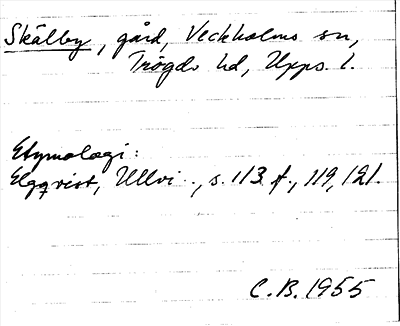 Skälby, gård, Veckholms sn,
Trögds hd, Upps. l.
Etymologi:
Elgqvist, Ullvi.., s. 113 f., 119, 121.
C.B. 1955